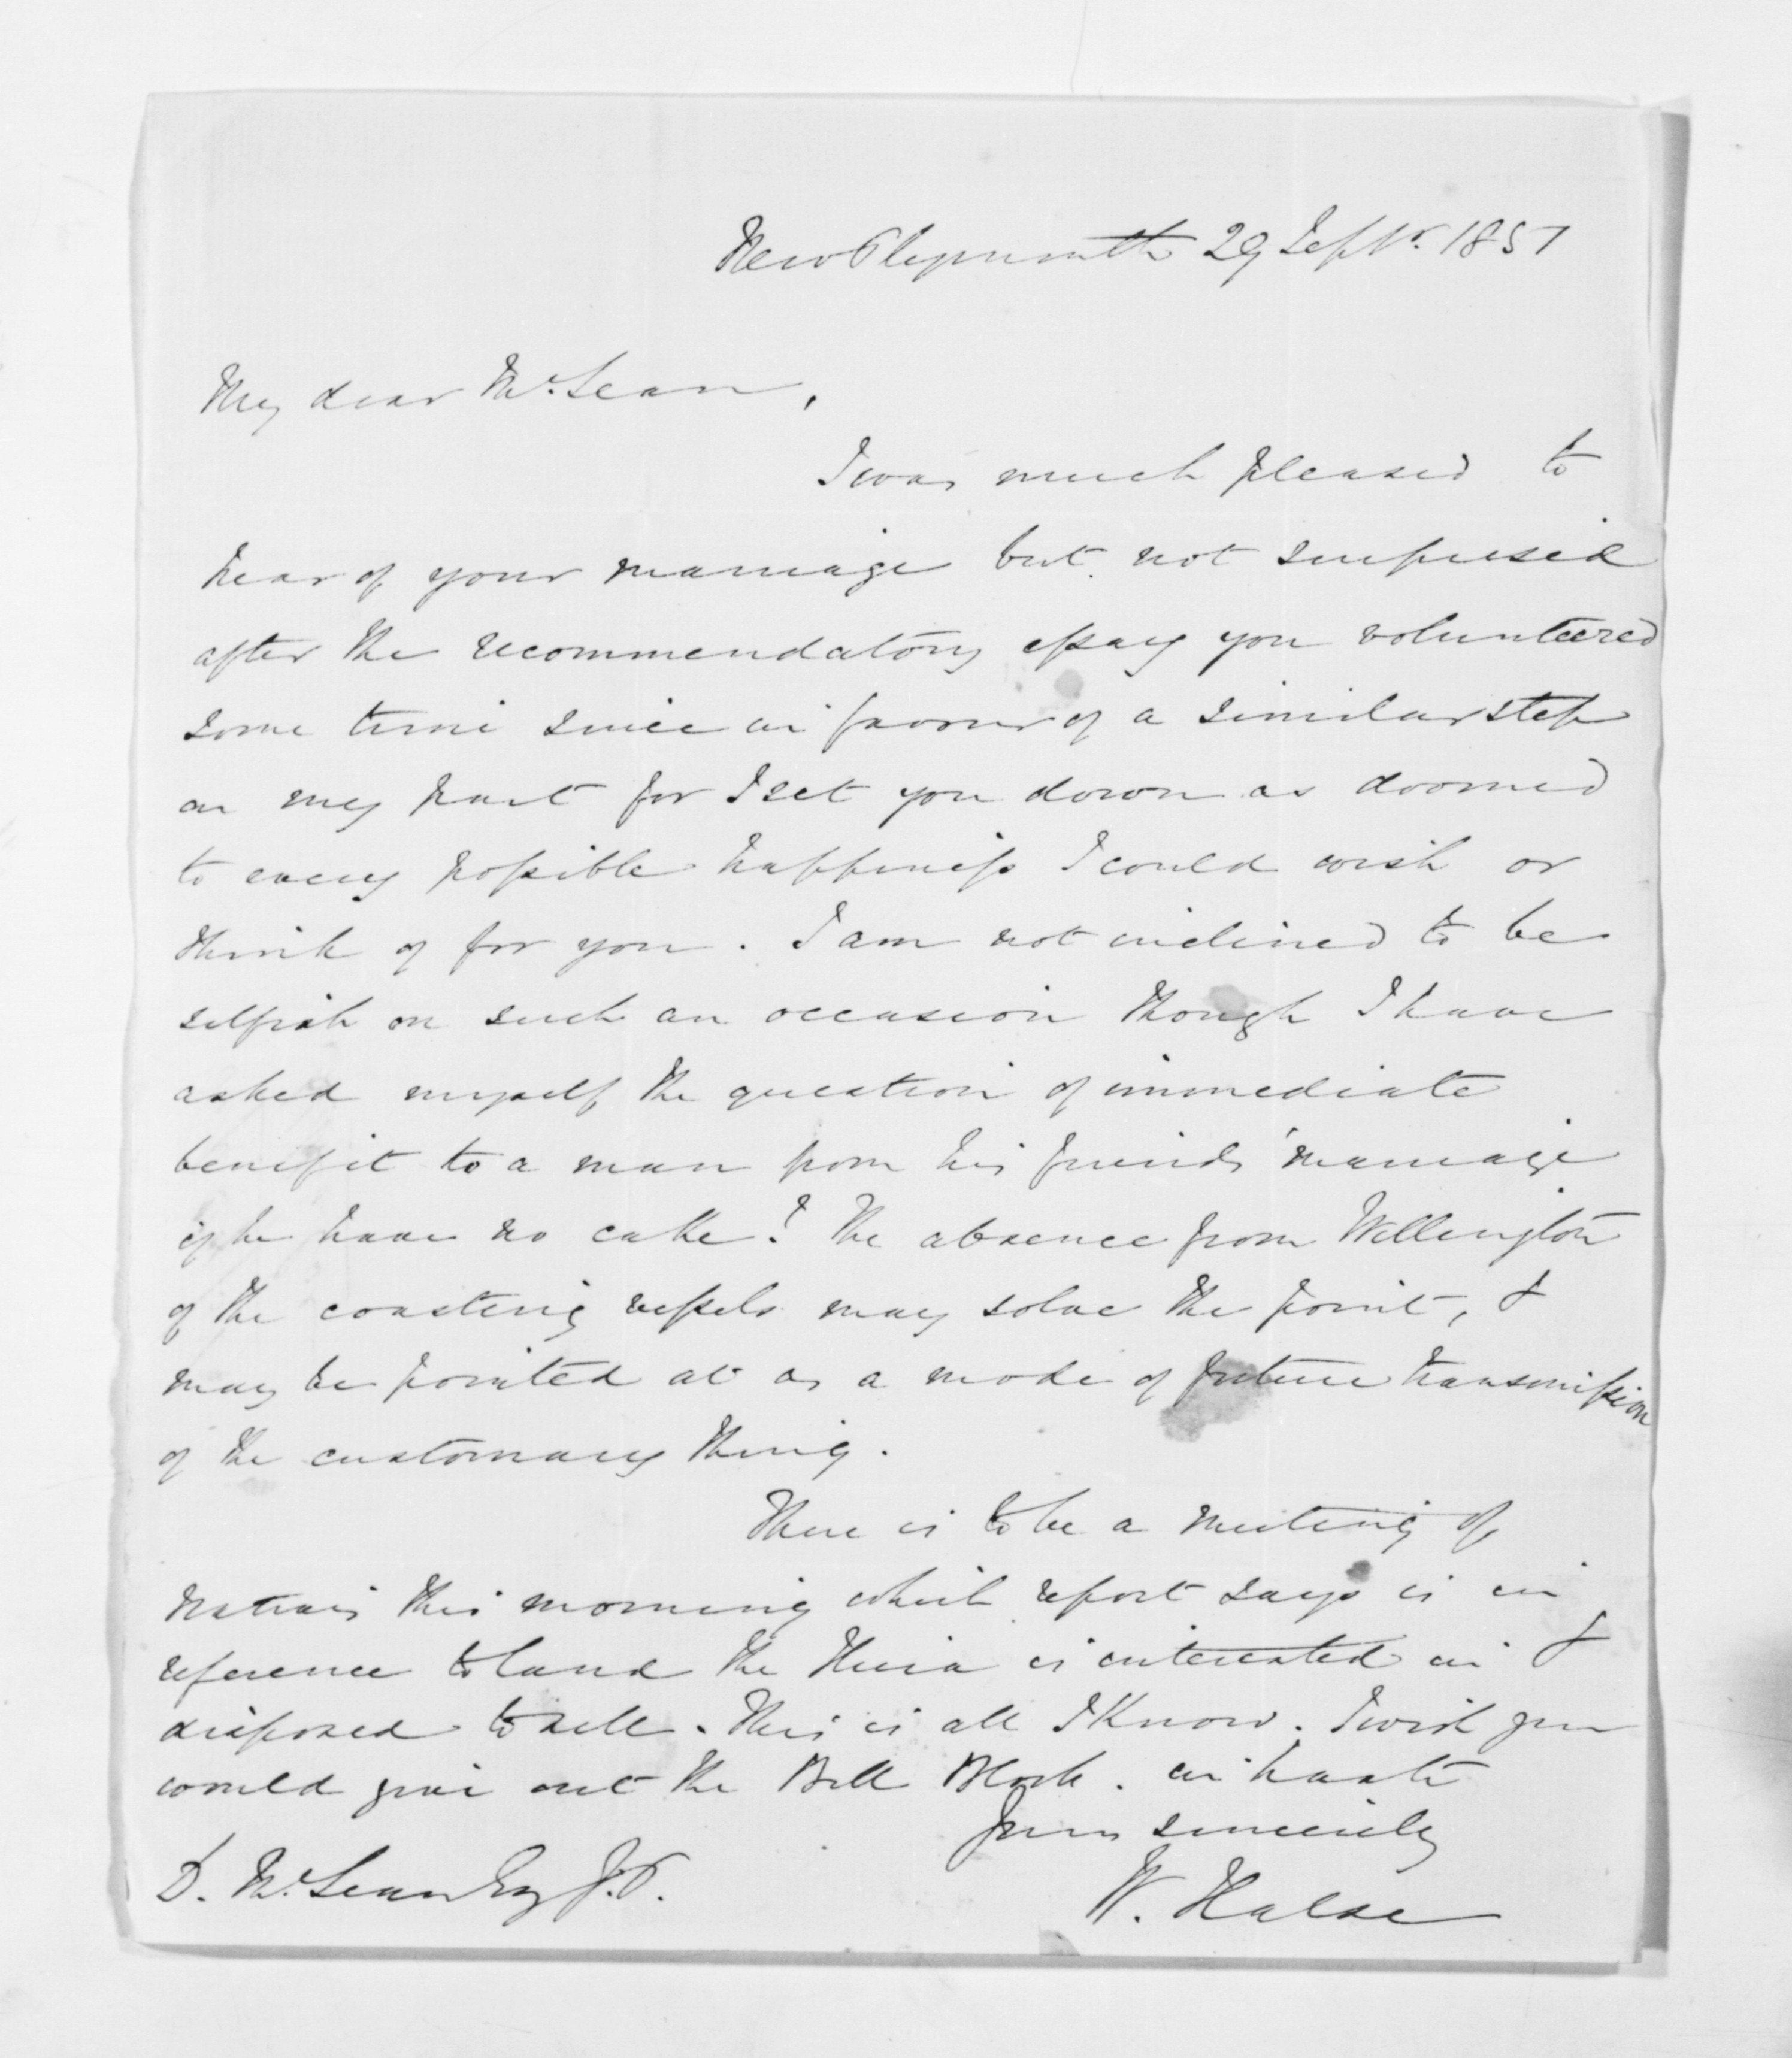 New Plymouth 29 Septr. 1851
My dear McLean,
I was much pleased to
hear of your marriage but not surprised
after the recommendatory essay you volunteered
some time since in favour of a similar step
on my part for I set you down as doomed
to every possible happiness I could wish or
think of for you. I am not inclined to be
selfish on such an occasion though I have
asked myself the question of immediate
benefit to a man from his friends' marriage
if he have no cake? The absence from Wellington
of the coasting vessels may solve the point, &
may be pointed at as a mode of future transmission
of the customary thing.
There is to be a meeting of
Natives this morning which report says is in
reference to land the Huia is interested in &
disposed to sell. This is all I know. I wish you
would give out the Bell Block. in haste
Yours sincerely
W. Halse
D. McLean Esq J.P.